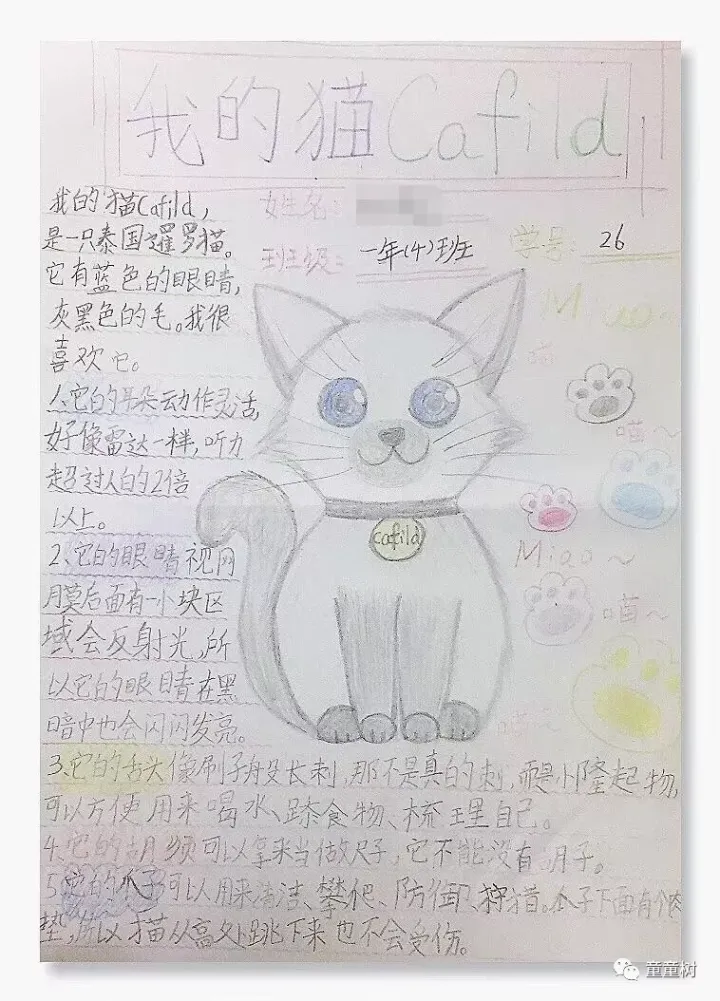 我的猫Cafild
我的猫Cafild,
是一只泰国暹罗猫。
它有蓝色的眼睛,
灰黑色的毛。我很
喜欢它。
1、它的耳朵动作灵活,
好像雷达一样,听力
超过人的2倍
以上。
2、它的眼睛视网
膜后面有一小块区
域会反射光,所
以它的眼睛在黑
暗中也会闪闪发亮。
姓名:
班级: 一年(4)班班
学号: 26
喵
喵~
Miao~
喵~
喵~
cafild
3、它的舌头像刷子般长刺,那不是真的刺,而是小隆起物,
可以方便使用来喝水、舔食物、梳理自己。
4、它的胡须可以拿来当做尺子,它不能没有胡子。
5、它的爪子可以用来清洁、攀爬、防御、狩猎。爪子下面有个肉
垫,所以猫从高处跳下来也不会受伤。
童童树